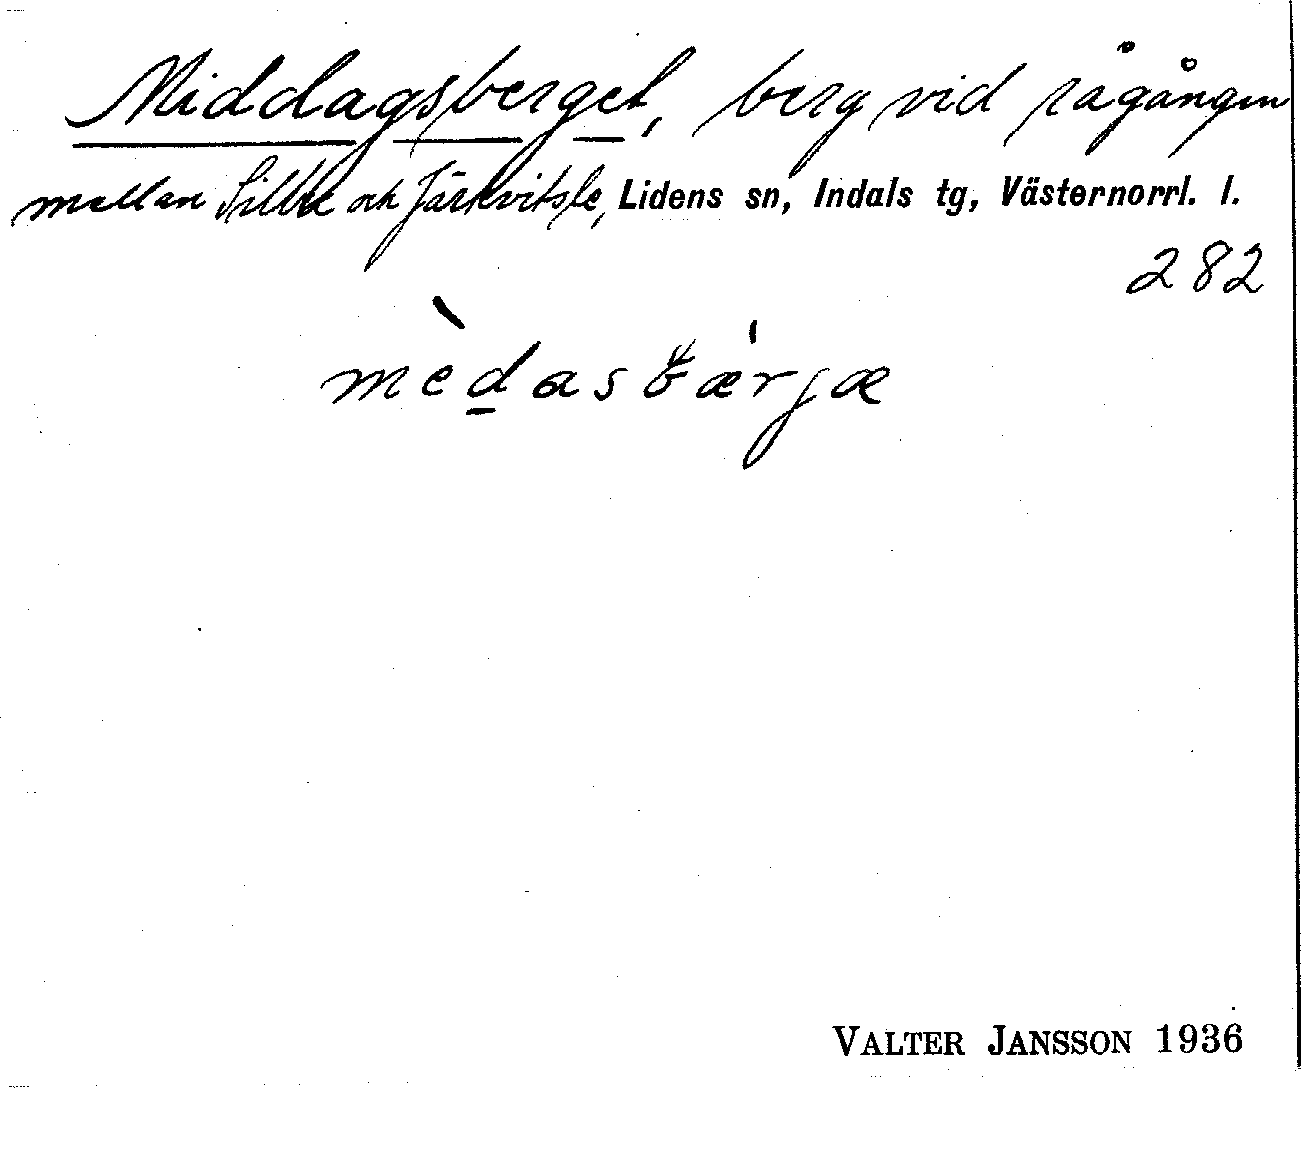 Middagsberget, berg vid rågången
mellan Sillre och Järkvitsle, Lidens sn, Indals tg, Västernorrl. l.
282
mèdasbærjæ
VALTER JANSSON 1936